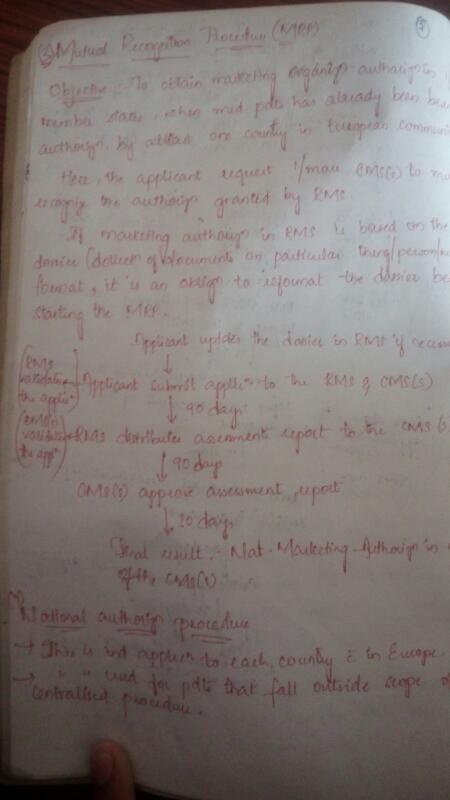 5
(3) Mutual Recognition Procedure (MRP)
Objective: To obtain marketing authorisn in
member states, when med. pdts has already been
authorisn by atleast one country in European
Here, the applicant request 1/more CMS(s) to
recognize the authorisn granted by RMS.
If marketing authorisn in RMS is based on the
dossier (collectn of documents on particular thing/person/
format, it is an oblign to reformat the dossier
starting the MRP.
Applicant updates the dossier in RMS if
↓
(RMS validates the applicn) Applicant submit applicn to the RMS & CMS(s)
↓ 90 days
(CMS(s) validates the appln) RMS distributes assessment report to the CMS(
↓ 90 days
CMS(s) approve assessment report
↓ 30 days
Final result:- Nat. Marketing Authorisn in
of the CMS(s)
(4)
National authorisn procedure
→ This is ind applicn to each country in Europe
→ " " used for pdts that fall outside scope
centralised procedure.